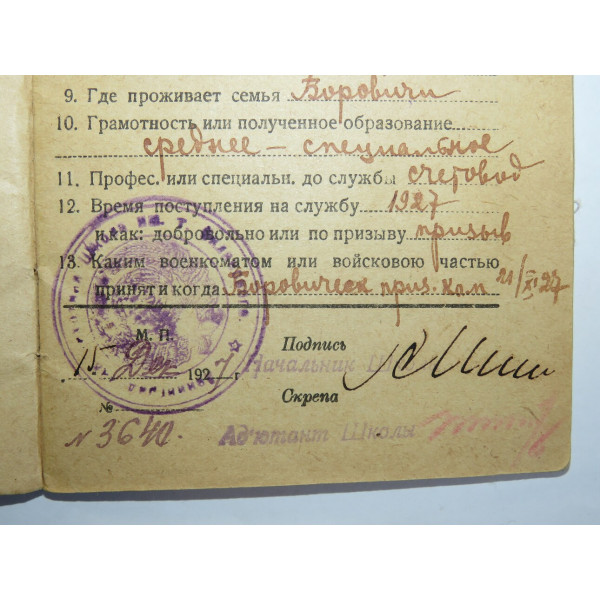 9. Где проживает семья Боровичи
10. Грамотность или полученное образование
среднее – специальное
11. Профес. или специальн. до службы счетовод
12. Время поступления на службу 1927
и как: добровольно или по призыву призыв
13. Каким военкоматом или войсковою частью
принят и когда Боровическ приз. кам 21/XI 27
М. П. Подпись
15 Дек 1927 г. Начальник
Скрепа
№
N 3640. Адъютант Школы